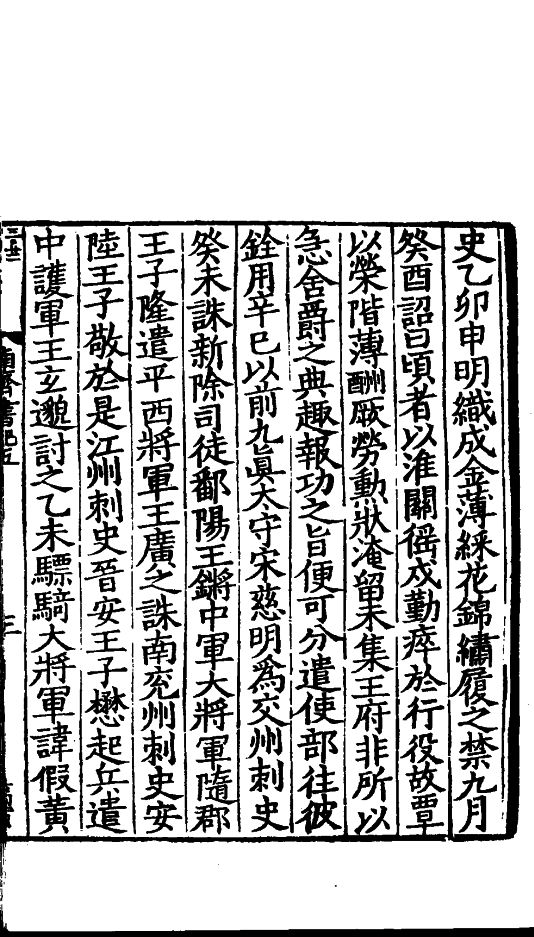 史乙卯申明織成金薄綵花錦繡履之禁九月
癸酉詔曰頃者以淮關徭戍勤瘁於行役故覃
以榮階薄酬厥勞勳狀淹留未集王府非所以
急舍爵之典趣報功之旨便可分遣使部往彼
銓用辛巳以前九眞太守宋慈明爲交州刺史
癸未誅新除司徒鄱陽王鏘中軍大將軍隨郡
王子隆遣平西將軍王廣之誅南兖州刺史安
陸王子敬於是江州刺史晉安王子懋起兵遣
中護軍王玄邈討之乙未驃騎大將軍諱假黃
南齊書紀五
三